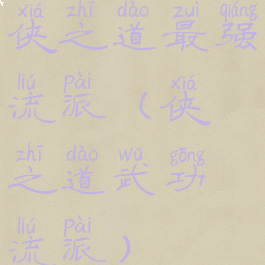 xiá zhī dào zuì qiáng
侠之道最强
liú pài xiá
流派（侠
zhī dào wǔ gōng
之道武功
liú pài
流派）